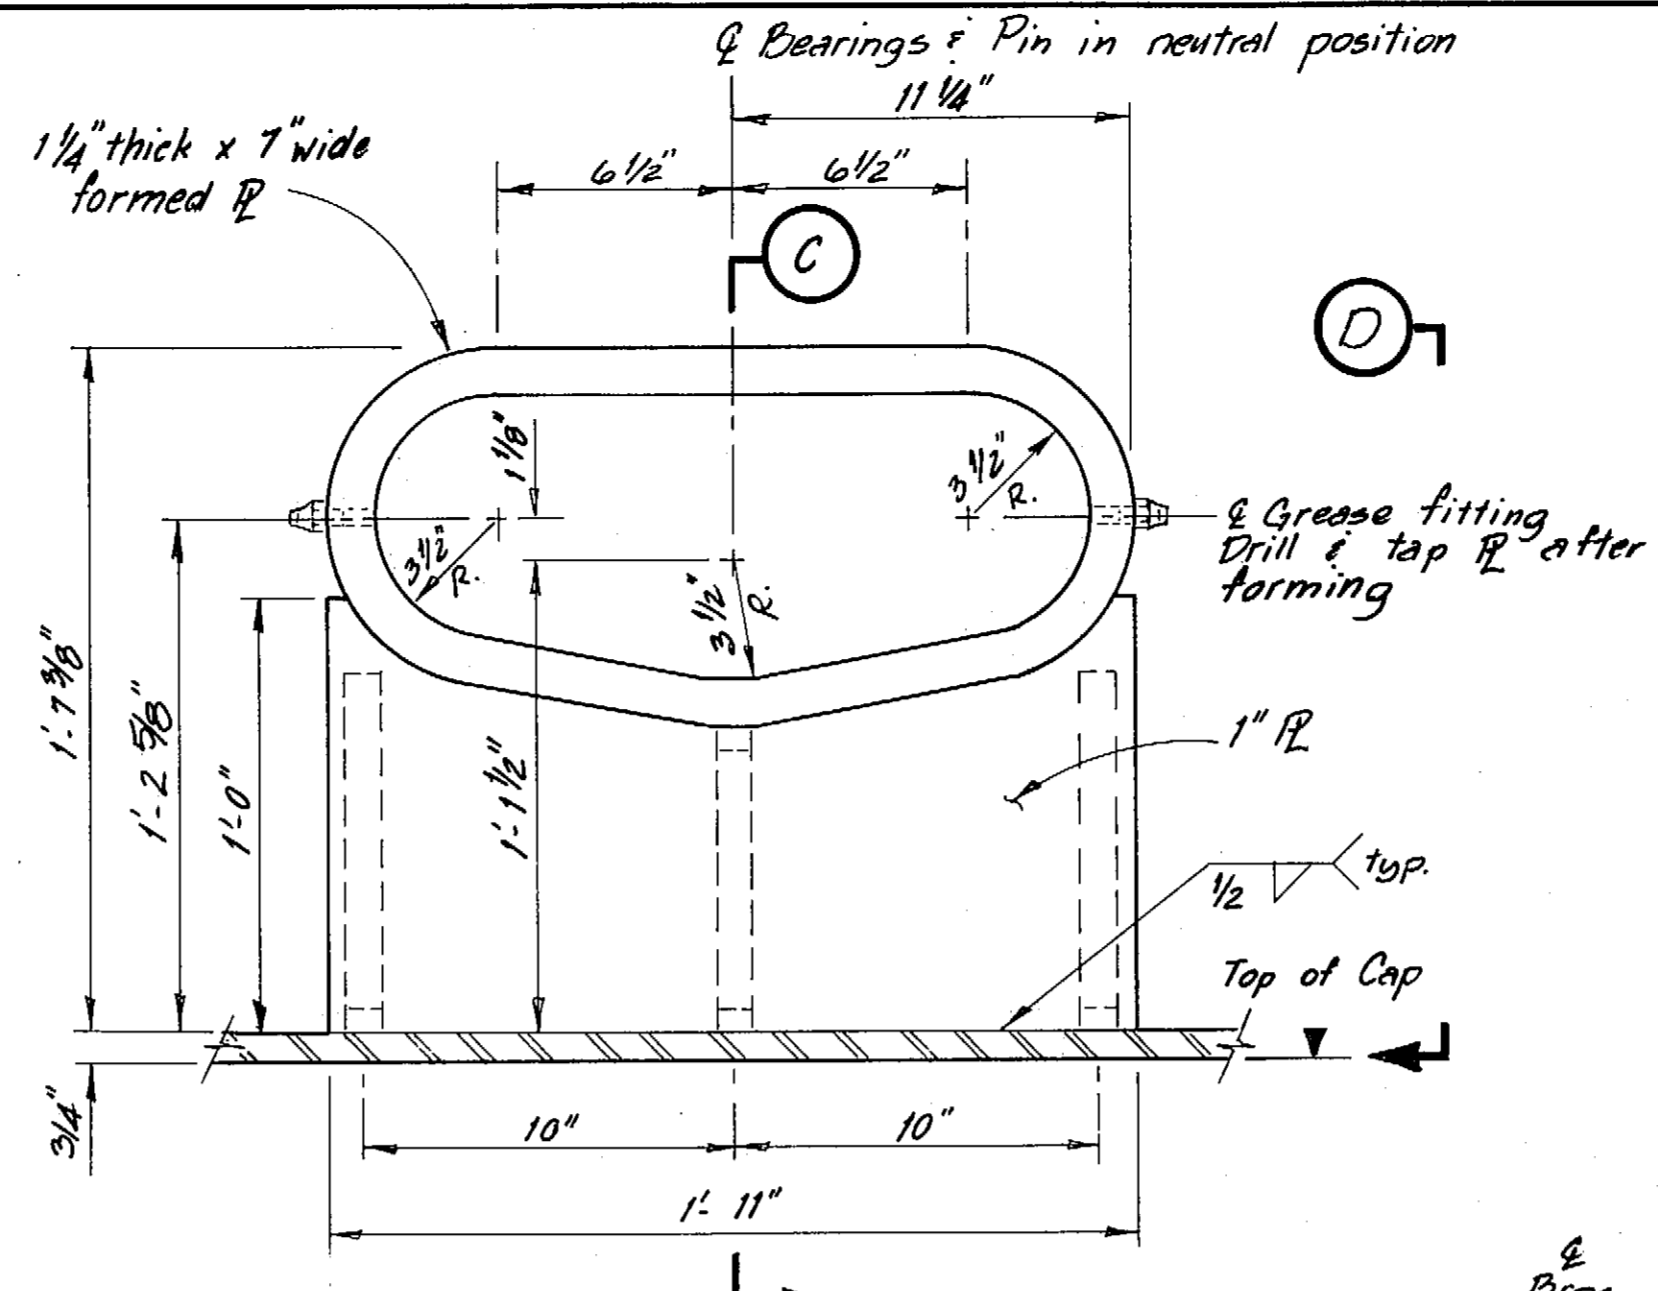 ℄ Bearings & Pin in neutral position
11 1/4"
1 1/4" thick x 7" wide
formed ℙL
6 1/2"
6 1/2"
C
D
1 1/8"
3 1/2" R.
3 1/2" R.
3 1/2" R.
℄ Grease fitting
Drill & tap ℙL after
forming
1'-7 3/8"
1'-2 5/8"
1'-0"
1'-1 1/2"
1" ℙL
1/2
typ.
Top of Cap
3/4"
10"
10"
1'- 11"
℄